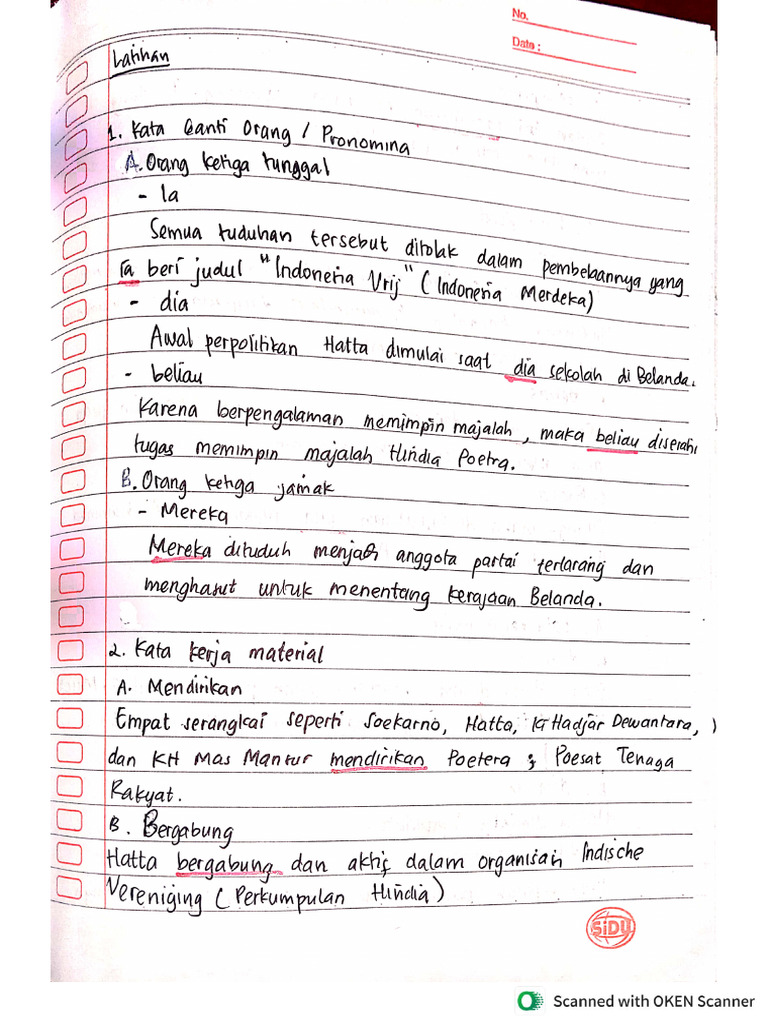 No.
Date :
Latihan
1. Kata Ganti Orang / Pronomina
A. Orang ketiga tunggal
- Ia
Semua tuduhan tersebut ditolak dalam pembelaannya yang
Ia beri judul "Indonesia Vrij" (Indonesia Merdeka)
- dia
Awal perpolitikan Hatta dimulai saat dia sekolah di Belanda.
- beliau
Karena berpengalaman memimpin majalah, maka beliau diserahi
tugas memimpin majalah Hindia Poetra.
B. Orang ketiga jamak
- Mereka
Mereka dituduh menjadi anggota partai terlarang dan
menghasut untuk menentang kerajaan Belanda.
2. Kata kerja material
A. Mendirikan
Empat serangkai seperti Soekarno, Hatta, Ki Hadjar Dewantara,
dan KH Mas Mansur mendirikan Poetera ; Poesat Tenaga
Rakyat.
B. Bergabung
Hatta bergabung dan aktif dalam organisasi Indische
Vereniging (Perkumpulan Hindia)
SiDU
Scanned with OKEN Scanner